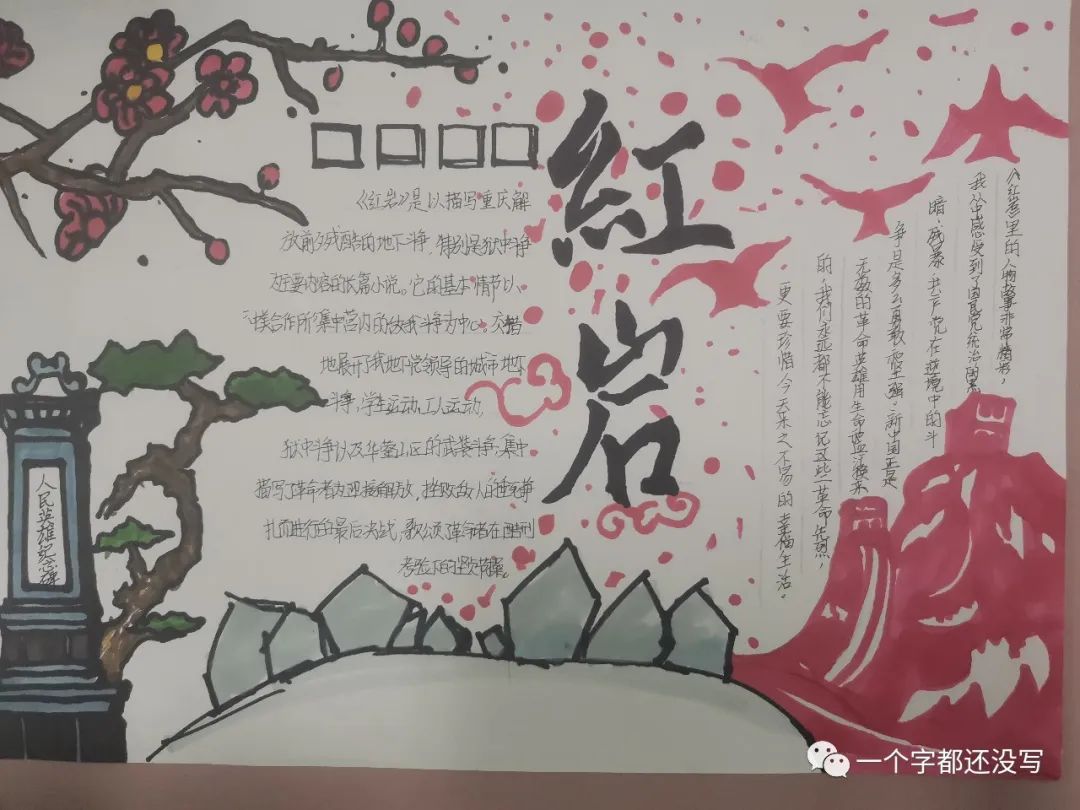 紅岩
《红岩》是以描写重庆解
放前夕残酷的地下斗争,特别是狱中斗争
为主要内容的长篇小说。它的基本情节以
"中美合作所"集中营内的敌我斗争为中心。交错
地展开了我地下党领导的城市地下
斗争,学生运动,工人运动,
狱中斗争以及华蓥山区的武装斗争,集中
描写了革命者为迎接解放,挫败敌人的垂死挣
扎而进行的最后决战,歌颂革命者在酷刑
考验下的坚贞节操。
《红岩》里的人物故事非常精彩,
我从中感受到了国民党统治的黑
暗,残暴,共产党在逆境中的斗
争是多么勇敢,坚强。新中国正是
无数的革命英雄用生命血汗换来
的,我们永远都不能忘记这些革命先烈,
更要珍惜今天来之不易的幸福生活。
人民英雄纪念碑
一个字都还没写